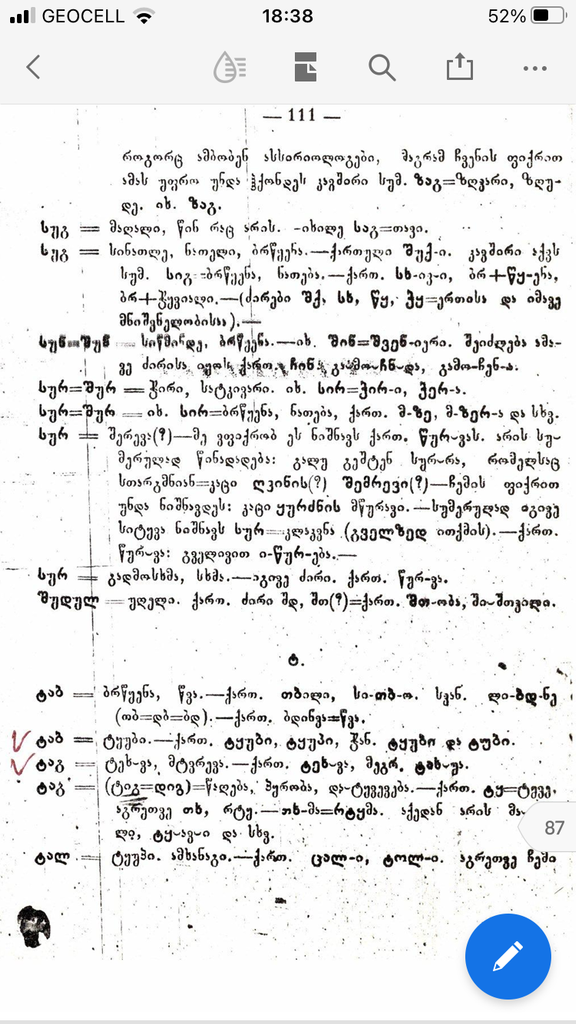 GEOCELL 18:38 52%
— 111 —
როგორც ამბობენ ასსირიოლოგები, მაგრამ ჩვენის ფიქრით
ამას უფრო უნდა ჰქონდეს კავშირი სუმ. ზაგ=ზღვარი, ზღუ-
დე. იხ. ზაგ.
სუგ = მაღალი, წინ რაც არის. -იხილე საგ=თავი.
სეგ = სინათლე, ნათელი, ბრწყენა.—ქართული შუქ-ი. კავშირი აქვს
სუმ. სიგ=ბრწყენა, ნათება.—ქართ. სხ-ივ-ი, ბრ+წყ-ენა,
ბრ+ჭყვიალი.—(ძირები შქ, სხ, წყ, ჭყ=ერთისა და იმავე
მნიშვნელობისაა).—
სუნ=შუნ = სიწმინდე, ბრწყენა.—იხ. შინ=შვენ-იერი. შეიძლება ამა-
ვე ძირისა იყოს ქართ. ჩინ: გამო-ჩნ-და, გამო-ჩენ-ა.
სურ=შურ = ჭირი, სატკივარი. იხ. სირ=ჭირ-ი, ჭერ-ა.
სურ=შურ = იხ. სირ=ბრწყენა, ნათება, ქართ. მ-ზე, მ-ზერ-ა და სხვ.
სურ = შერევა(?)—მე ვფიქრობ ეს ნიშნავს ქართ. წურ-ვას. არის სუ-
მერულად წინადადება: გალუ გეშტენ სურ-რა, რომელსაც
სთარგმნიან=კაცი ღვინის(?) შემრევი(?)—ჩემის ფიქრით
უნდა ნიშნავდეს: კაცი ყურძნის მწურავი.—სუმერულად იგივე
სიტყვა ნიშნავს სურ=კლაკვნა (გველზედ ითქმის).—ქართ.
წურ-ვა: გველივით ი-წურ-ება.—
სურ = გადმოსხმა, სხმა.—იგივე ძირი. ქართ. წურ-ვა.
შუდულ = უღელი. ქართ. ძირი შდ, შთ(?)=ქართ. შთ-ობა, ში-შთვილი.
ტ.
ტაბ = ბრწყენა, წვა.—ქართ. თბილი, სი-თბ-ო. სვან. ლი-ბდ-ნე
(თბ=დბ=ბდ).—ქართ. ბდინვა=წვა.
ტაბ = ტყუბი.—ქართ. ტყუბი, ტყუპი, ჭან. ტყუბი და ტუბი.
ტაგ = ტეხ-ვა, მტვრევა.—ქართ. ტეხ-ვა, მეგრ. ტახ-უა.
ტაგ = (ტიგ=დიგ)=წაღება, პყრობა, და-ტყვევება.—ქართ. ტყ=ტყვე.
აგრეთვე თხ, რტყ.—თხ-მა=რტყმა. აქედან არის
ტყ-ავი და სხვ.
ტალ = ტყუპი. ამხანაგი.—ქართ. ცალ-ი, ტოლ-ი. აგრეთვე ჩემი
87